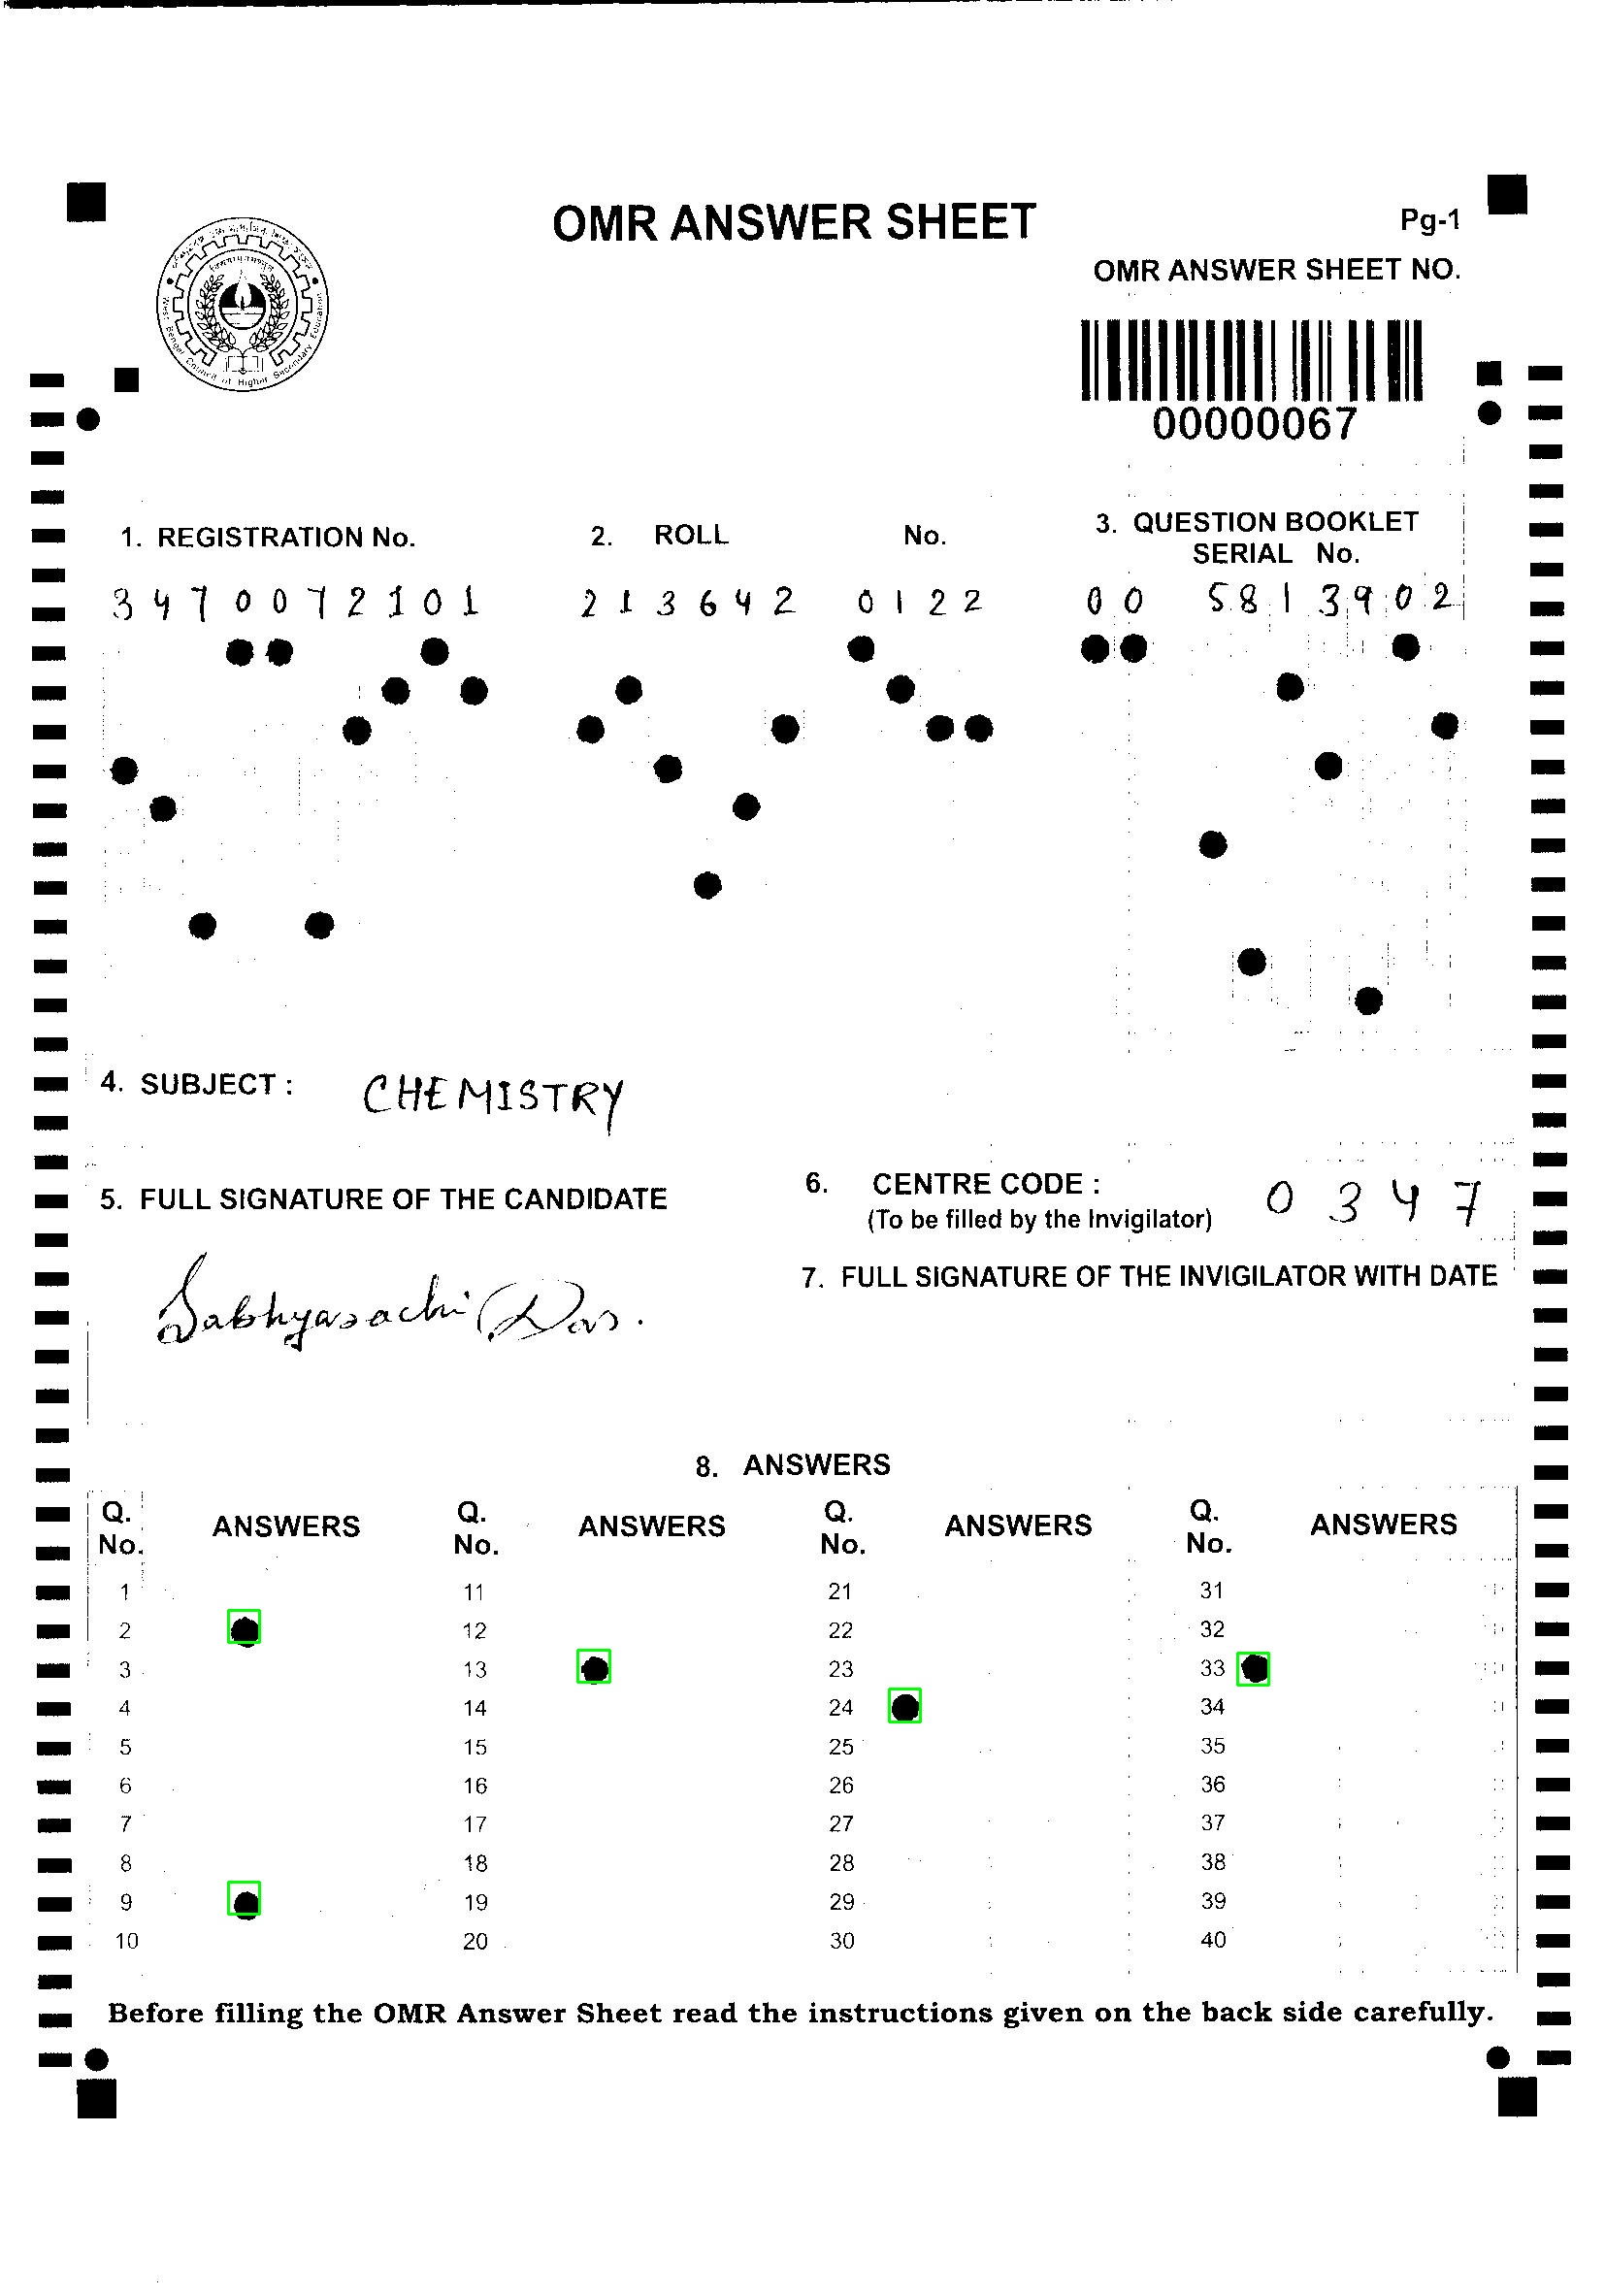 OMR ANSWER SHEET
Pg-1
OMR ANSWER SHEET NO.
00000067
West Bengal Council of Higher Secondary Education
1. REGISTRATION No.
2. ROLL No.
3. QUESTION BOOKLET
SERIAL No.
3470072101
213642 0122
00 5813902
4. SUBJECT : CHEMISTRY
5. FULL SIGNATURE OF THE CANDIDATE
6. CENTRE CODE : 0347
(To be filled by the Invigilator)
7. FULL SIGNATURE OF THE INVIGILATOR WITH DATE
Sabhyasachi Das.
8. ANSWERS
Q. No. ANSWERS Q. No. ANSWERS Q. No. ANSWERS Q. No. ANSWERS
1 11 21 31
2 12 22 32
3 13 23 33
4 14 24 34
5 15 25 35
6 16 26 36
7 17 27 37
8 18 28 38
9 19 29 39
10 20 30 40
Before filling the OMR Answer Sheet read the instructions given on the back side carefully.